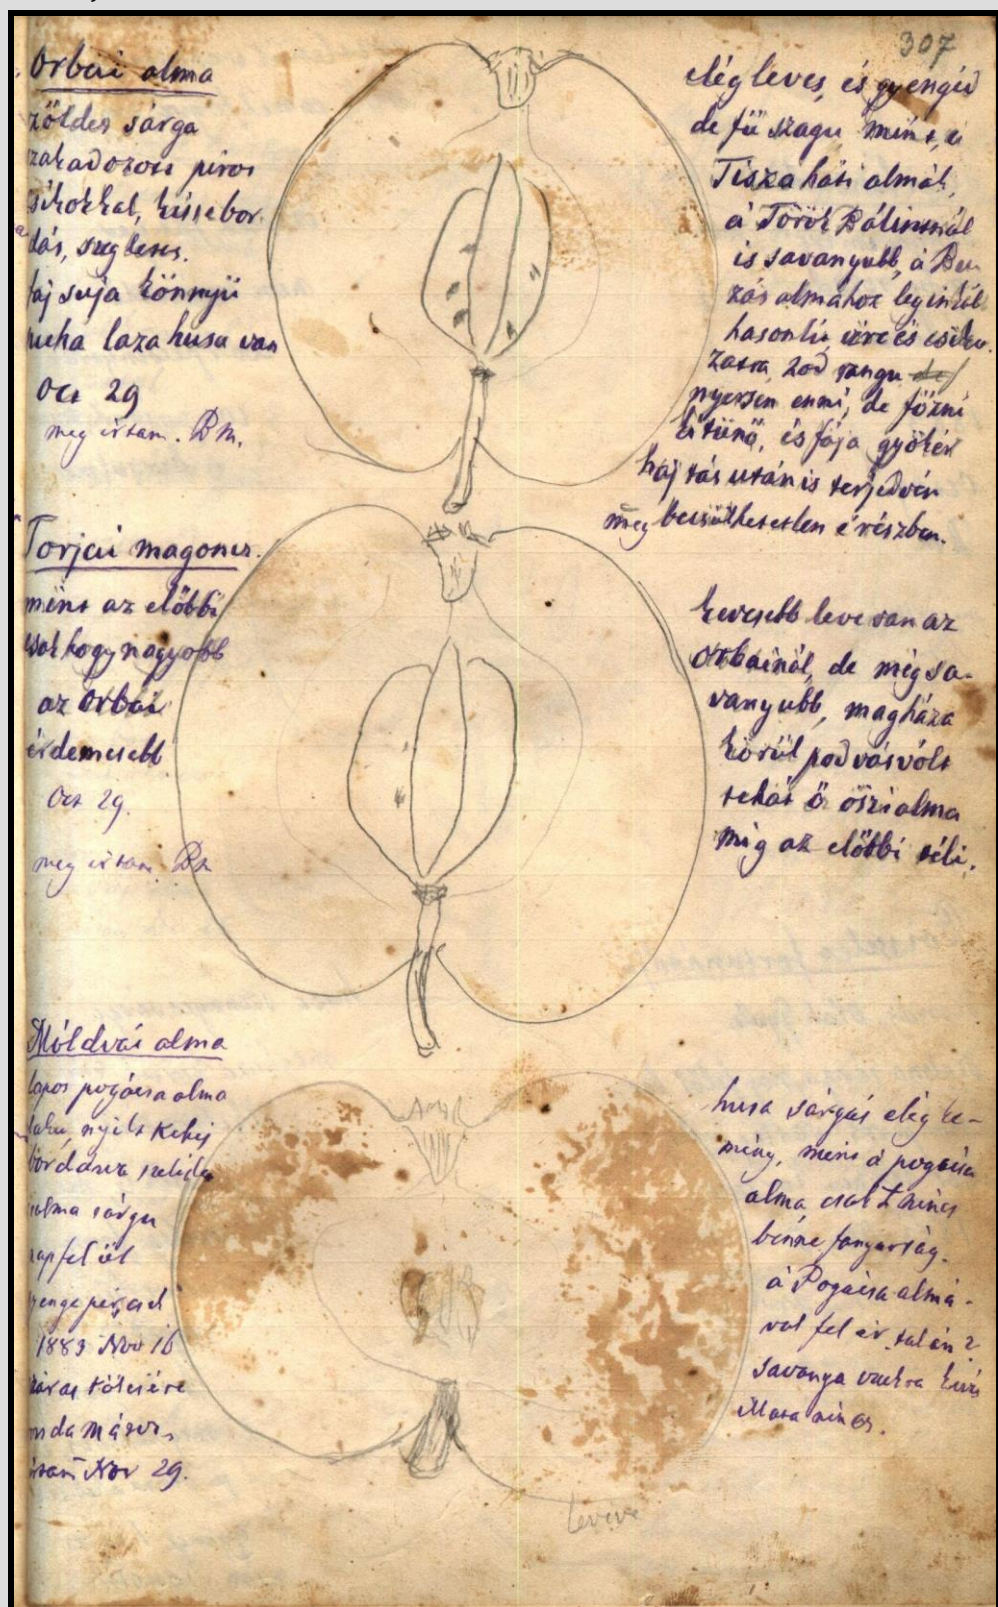 307
Orbai alma
zöldes sárga
piros
kissebor
dás,
héja könnyü
puha laza husa van
Oct 29
meg irtam. Bm.
elég leves, és gyengéd
de fü szagu mint, a
Tiszaháti almák,
a Török Bálintnál
is savanyubb, a Bu
zás almához leginkáb
hasonlit, izre és
zatra, rangu
nyersen enni, de főzni
kitünő, és fája gyökér
haj tás után is terjedvén
meg becsülhetetlen é részben.
Torjai magoncz.
mint az előbbi
csak hogy nagyobb
az Orbai
érdemesebb
Oct 29.
meg irtam. Bm
kevesebb leve van az
Orbainál, de még sa-
vanyubb, magháza
körül podvás vólt
tehát ő őszi alma
mig az előbbi téli.
Móldvai alma
lapos pogácsa alma
nyilt kehej
alma sárga
napfelöl
1883 Nov 16
Nov 29.
husa sárgás elég ke-
mény, mint a pogácsa
alma, csak nincs
benne fanyarság.
a Pogácsa almá-
val fel ér talán?
savanya
nincs.
levive